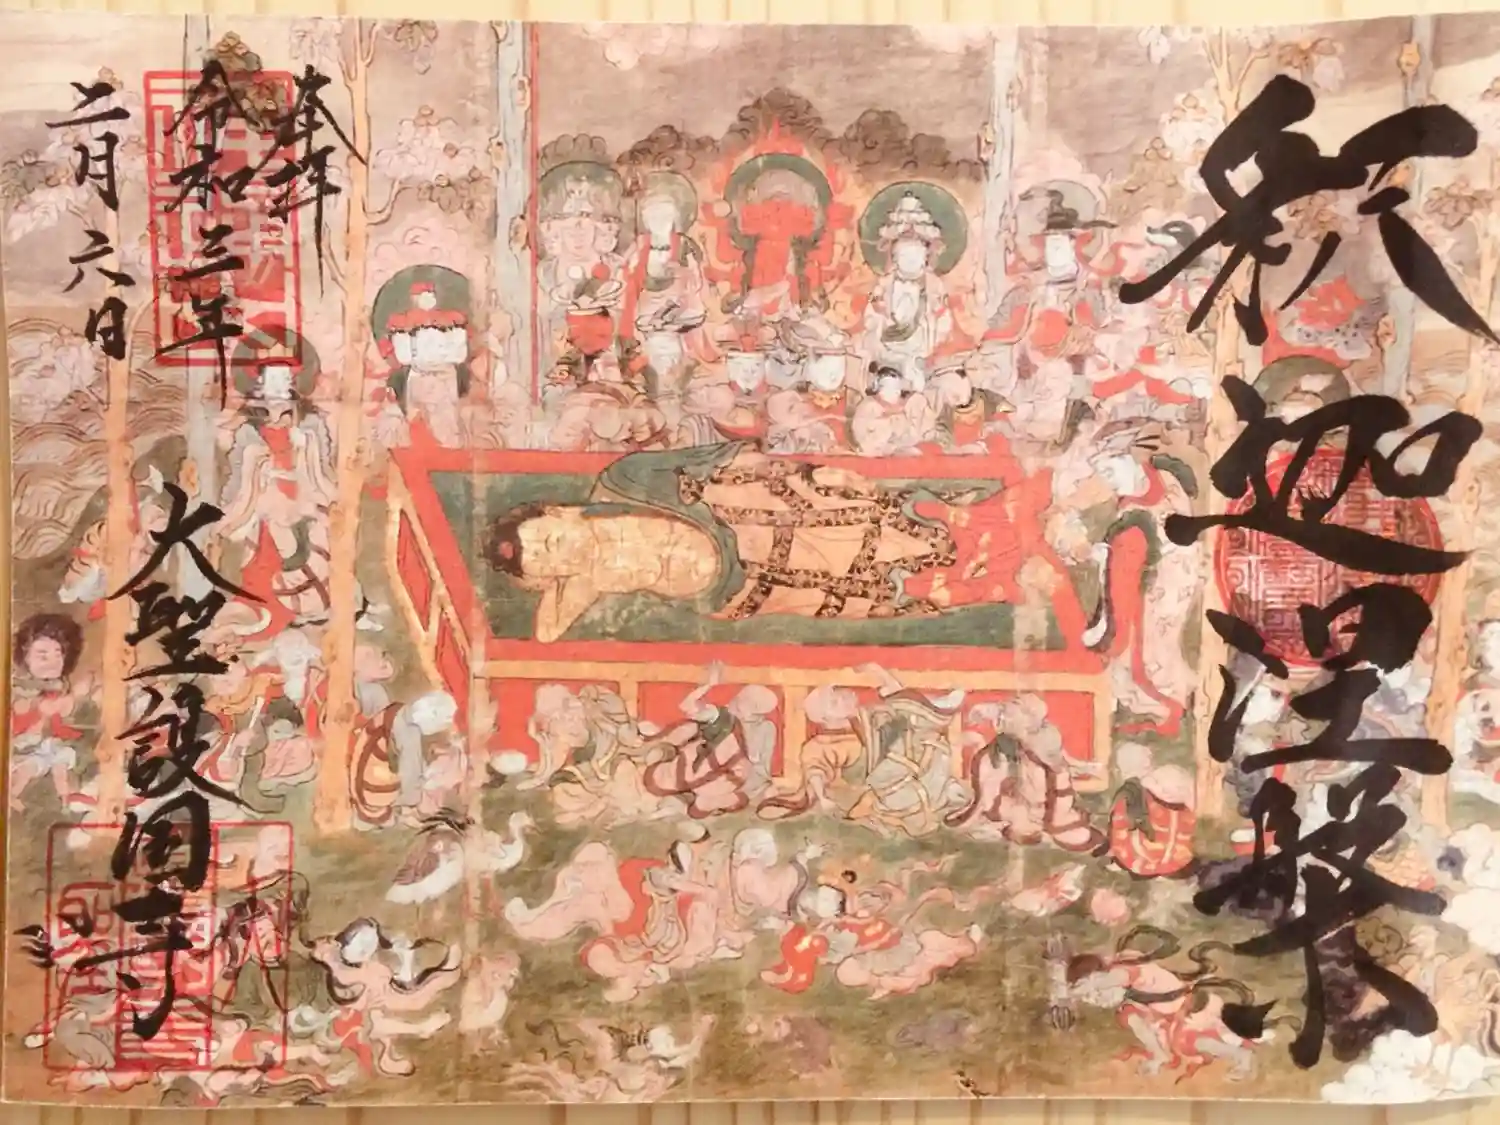 釈迦涅槃
奉拝
令和三年
二月六日
大聖護国寺